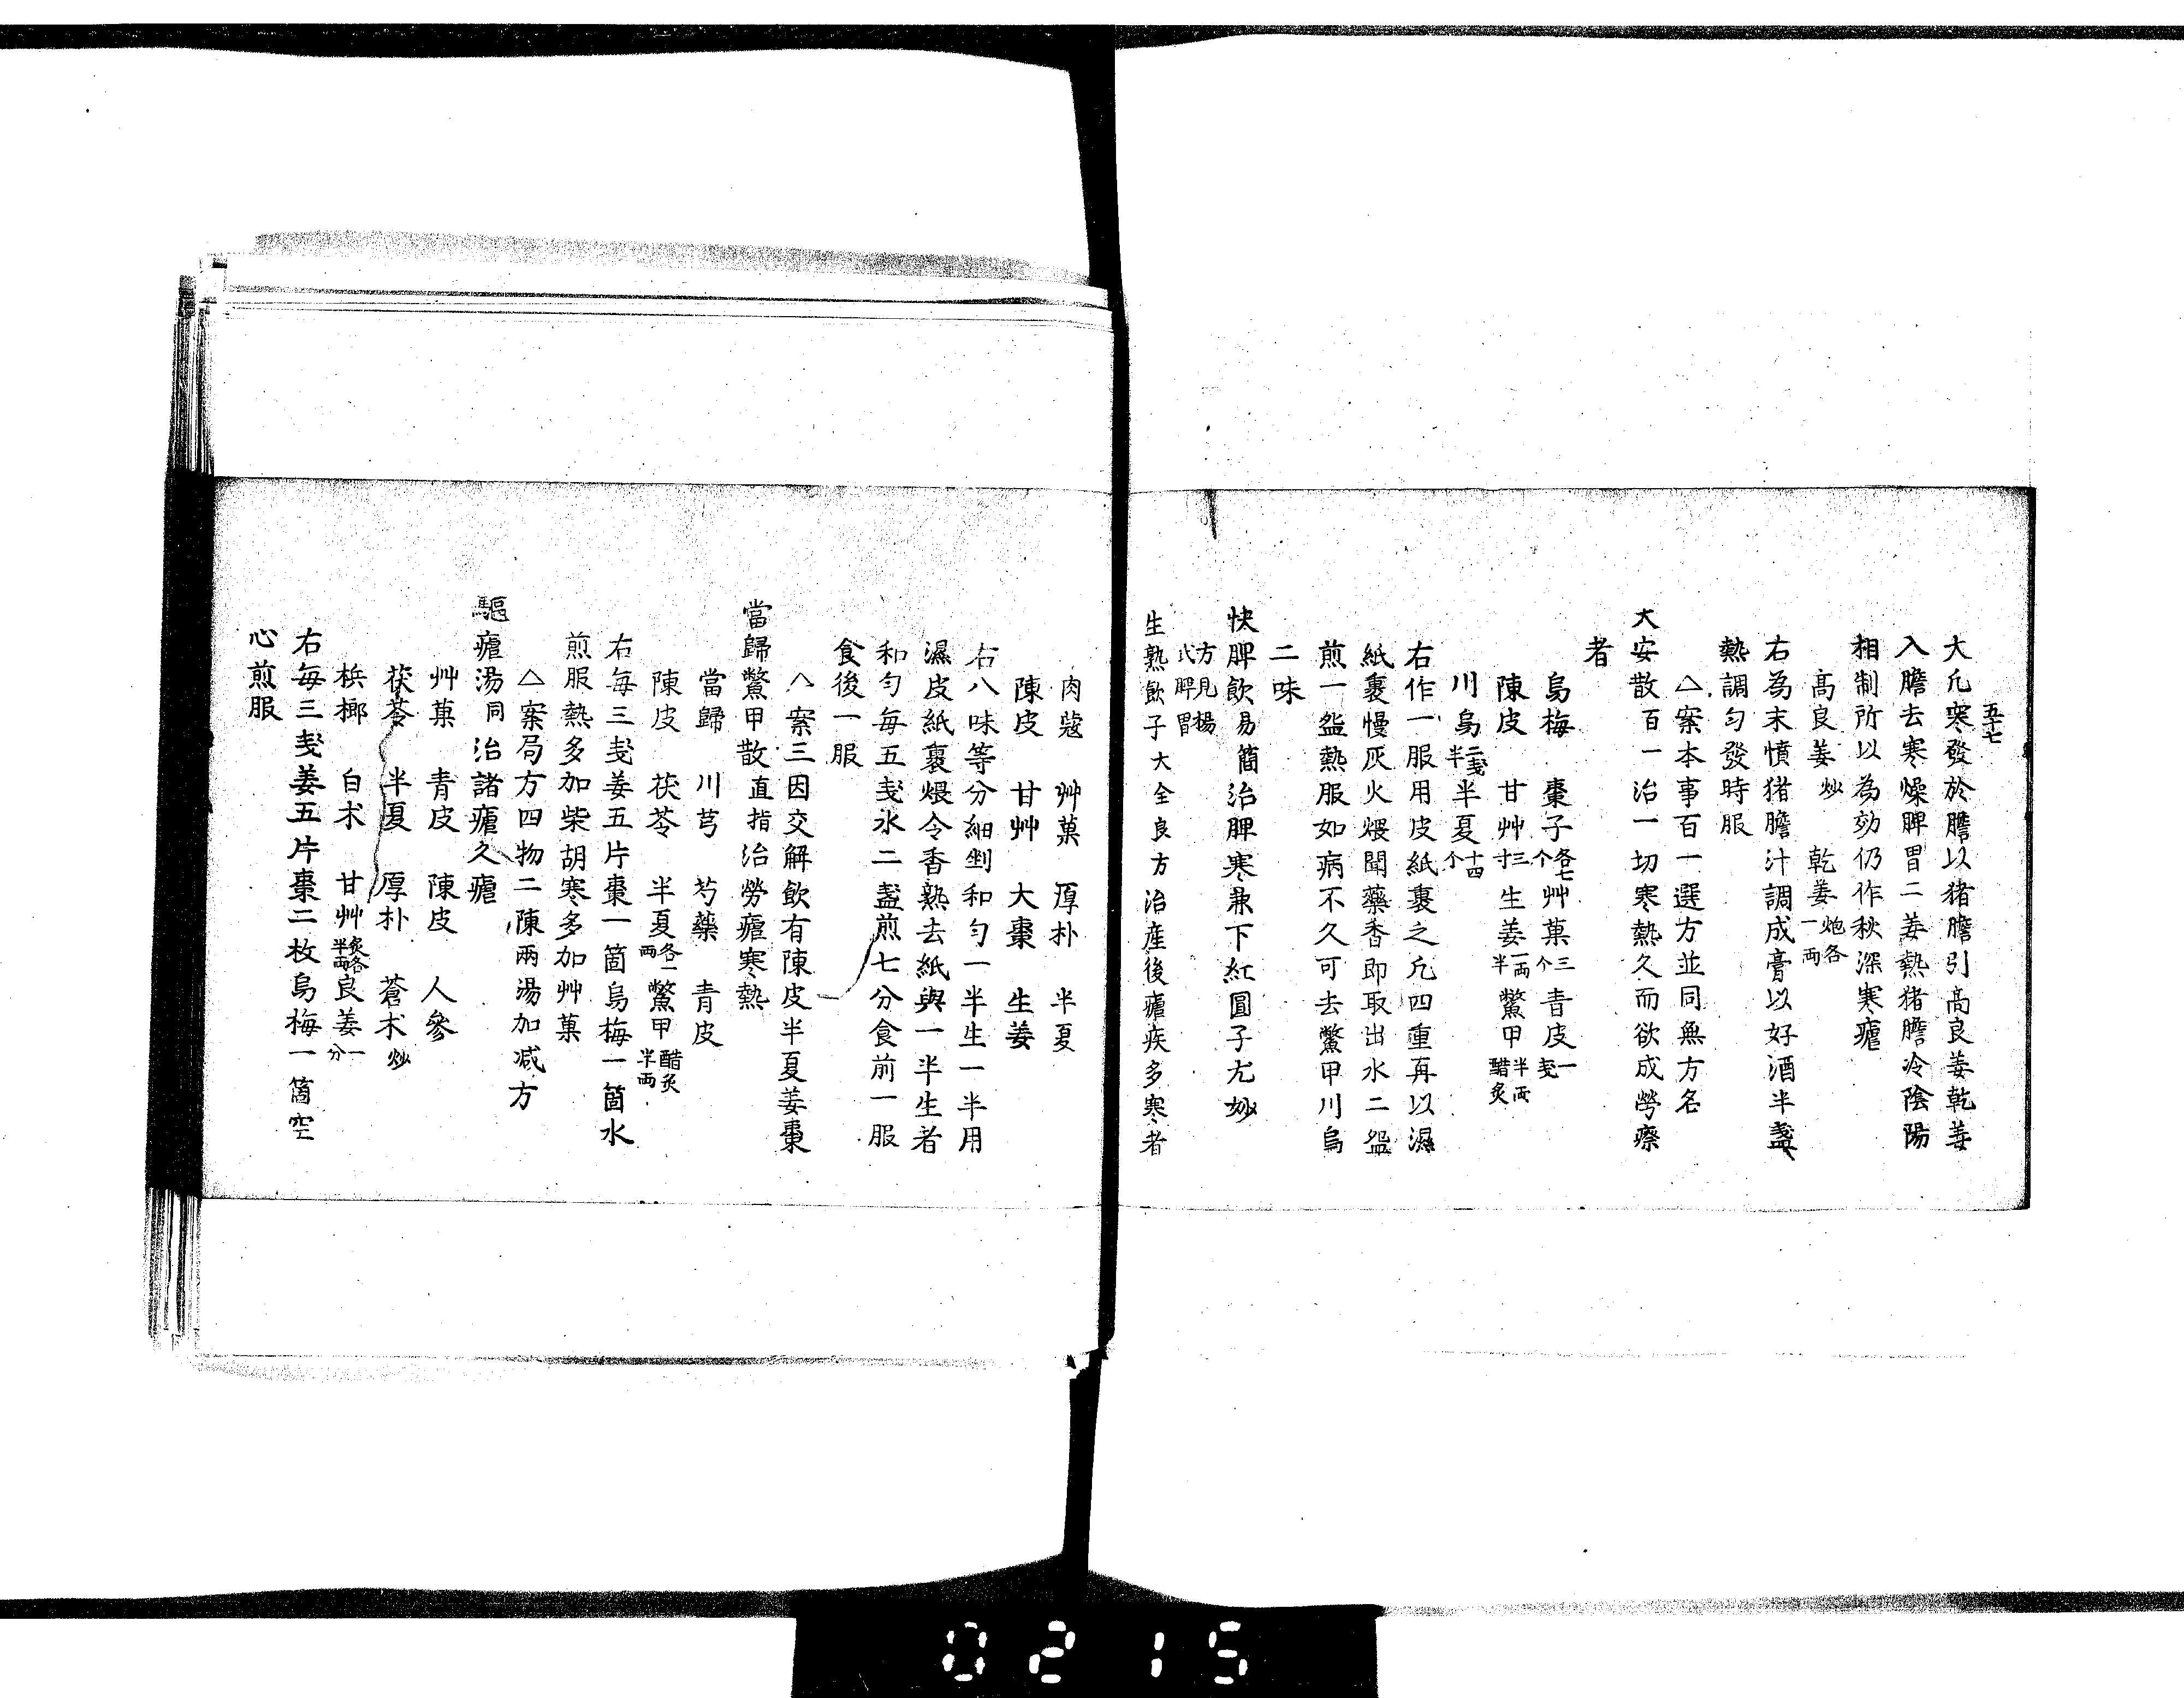 五十七
大凢寒發於膽以猪膽引高良姜乾姜
入膽去寒燥脾胃二姜熱猪膽冷陰陽
相制所以為効仍作秋深寒瘧
高良姜炒　乾姜炮各一両
右為末憤猪膽汁調成膏以好酒半盞
熱調勻發時服
△案本事百一選方並同無方名
大安散百一治一切寒熱久而欲成勞瘵
者
烏梅　棗子各七个艸菓三个青皮一戔
陳皮　甘艸三寸生姜一両半鱉甲半両醋炙
川烏二戔半半夏十四个
右作一服用皮紙裹之凢四重再以濕
紙裹慢灰火煨聞藥香即取出水二盌
煎一盌熱服如病不久可去鱉甲川烏
二味
快脾飲易簡治脾寒兼下紅圓子尤妙
方見楊氏脾胃
生熟飲子大全良方治産後瘧疾多寒者
肉蔻　艸菓　厚朴　半夏
陳皮　甘艸　大棗　生姜
右八味等分細剉和勻一半生一半用
濕皮紙裹煨令香熟去紙與一半生者
和勻每五戔水二盞煎七分食前一服
食後一服
△案三因交解飲有陳皮半夏姜棗
當歸鱉甲散直指治勞瘧寒熱
當歸　川芎　芍藥　青皮
陳皮　茯苓　半夏各一両鱉甲醋炙半両
右每三戔姜五片棗一箇烏梅一箇水
煎服熱多加柴胡寒多加艸菓
△案局方四物二陳兩湯加減方
驅瘧湯同治諸瘧久瘧
艸菓　青皮　陳皮　人參
茯苓　半夏　厚朴　蒼朮炒
梹榔　白朮　甘艸炙各半両良姜一分
右每三戔姜五片棗二枚烏梅一箇空
心煎服
0215